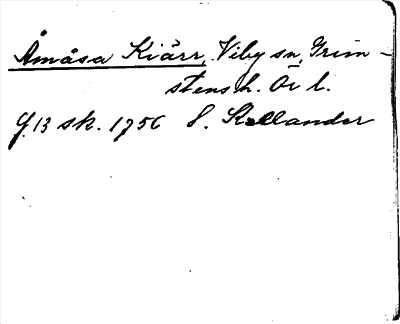 Åmåsa Kiärr, Viby sn, Grim-
stens h. Ör l.
G. 13 sk. 1756 S. Kollander